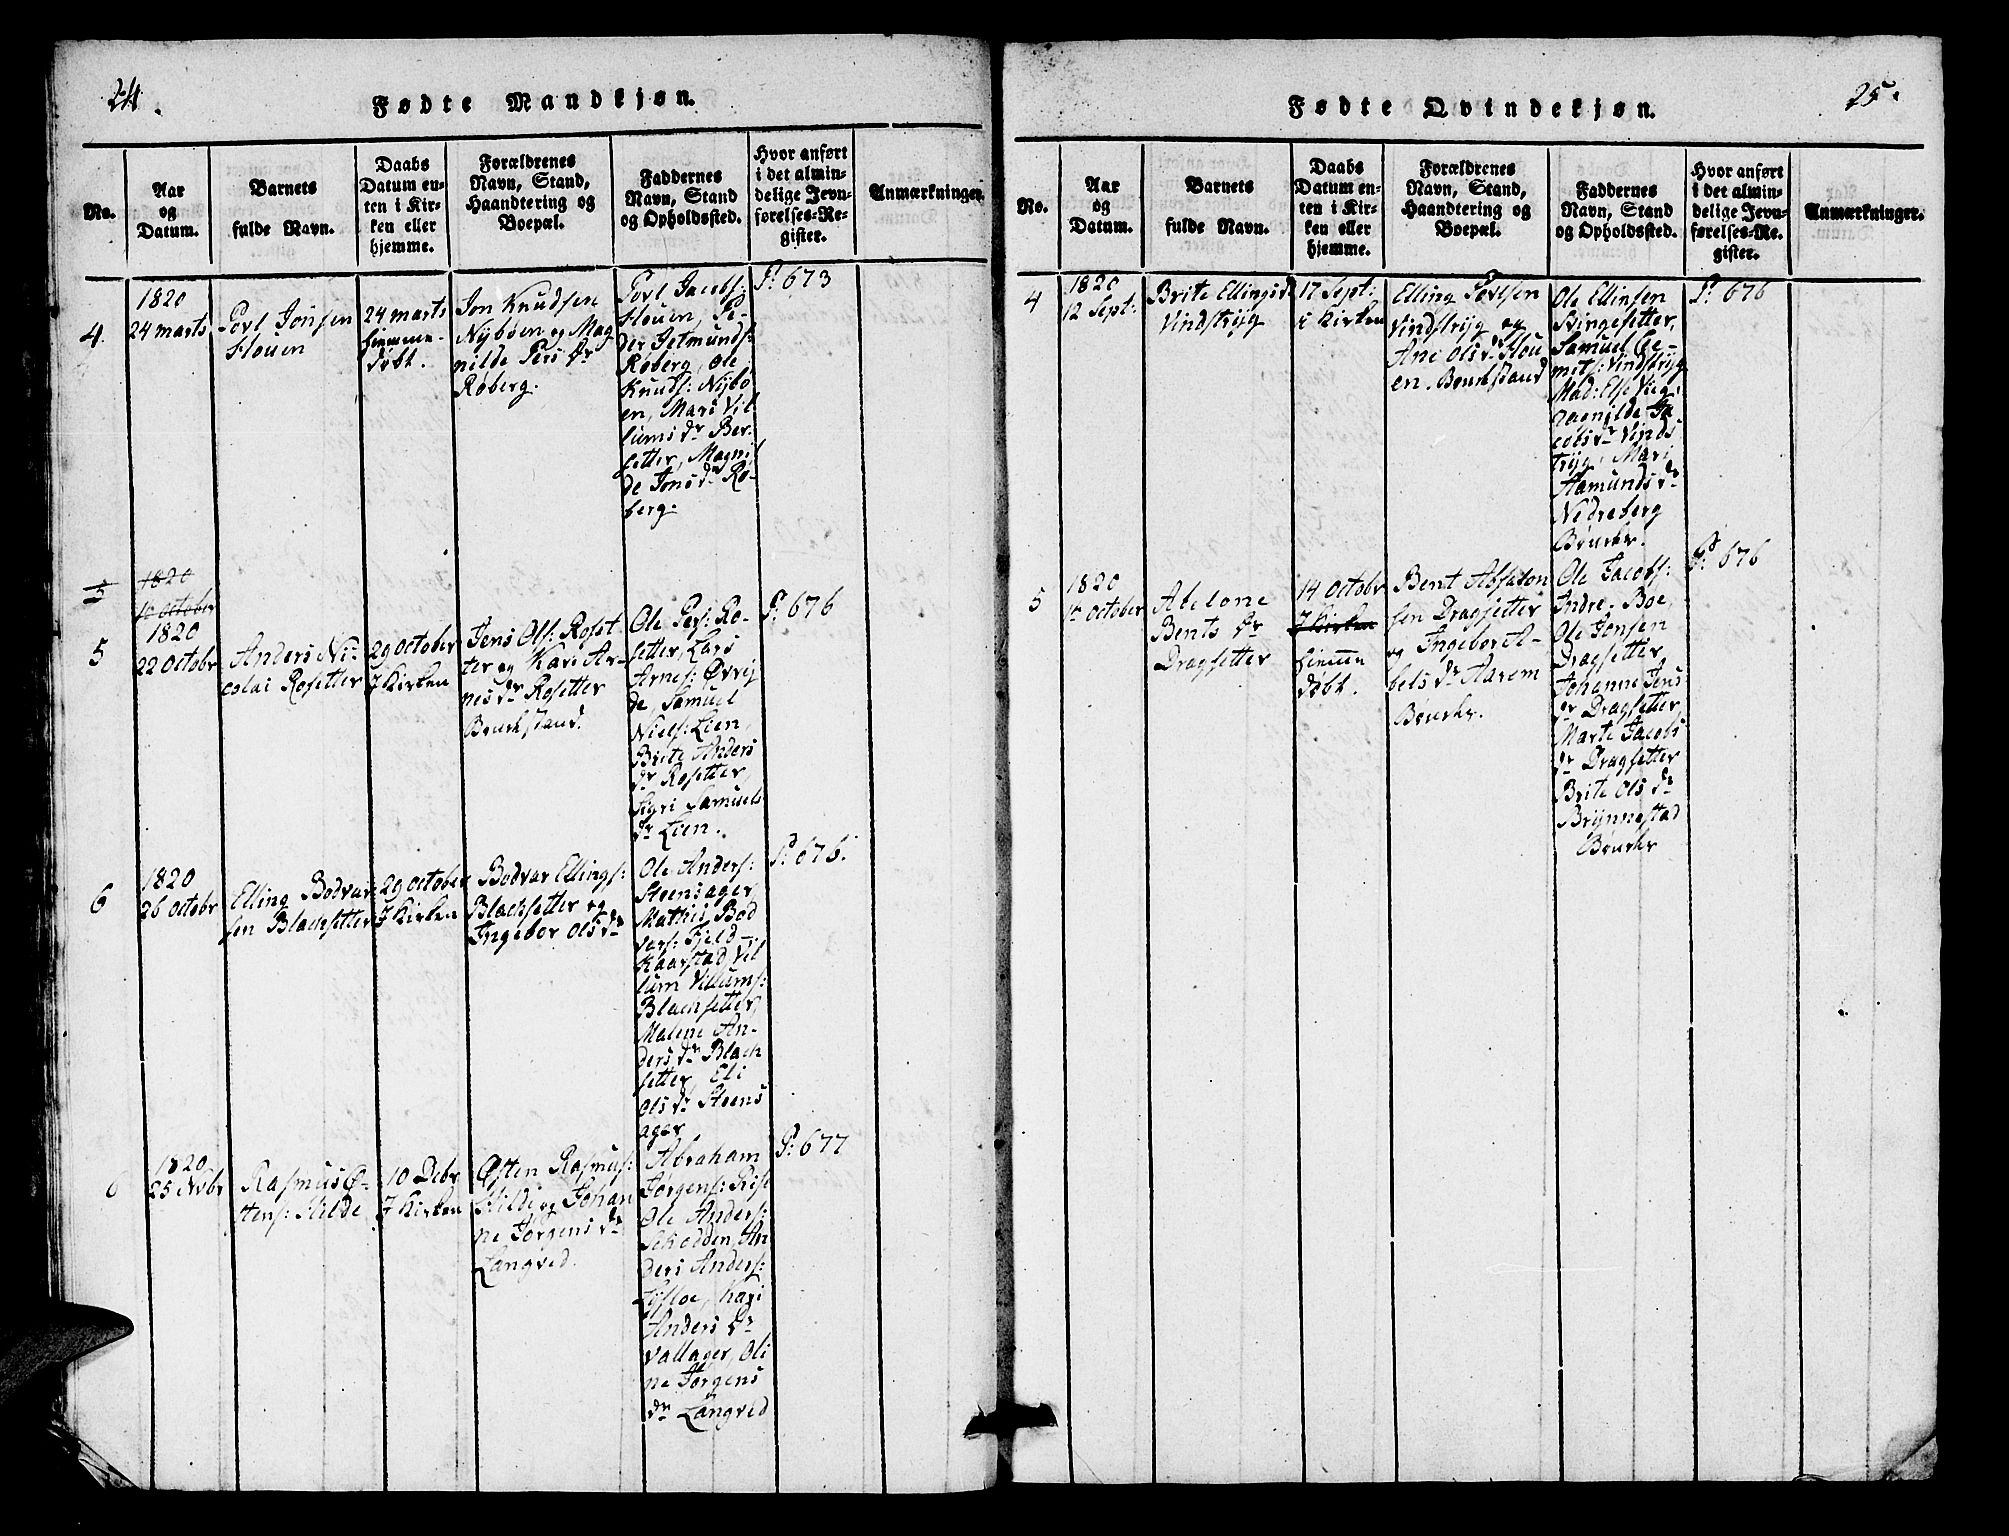 24.
Fødte Mandkjøn.
No.
Aar
og
Datum.
Barnets
fulde Navn.
Daabs
Datum en-
ten i Kir-
ken eller
hjemme.
Forældrenes
Navn, Stand,
Haandtering og
Boepæl.
Faddernes
Navn, Stand
og Opholdssted.
Hvor anført
i det almin-
delige Jevn-
førelses-Re-
gister.
Anmærkninger.
4.
1820
24 marts
Porl Jonsen
Flouen
24 marts
hiemme-
døbt.
Jon Knudsen
Nybøen og Mag
nilde Pers Dr
Røberg.
Porl Jacobs:
Flouen, Pe-
der Jetmunds:
Røberg, Ole
Knuds: Nybø
en, Mari Vil
lums dr Ber-
setter, Magnil
de Jons dr Rø-
berg.
P: 673
5
1820
10 october
5
1820
22 octobr
Anders Ni-
colai Rosetter
29 october
I Kirken
Jens Ols: Roset
ter og Kari Ar-
nes dr Rosetter
Brukstand.
Ole Pers: Ro-
setter, Lars
Arnes: Øvrij
de, Samuel
Niels: Lien,
Brite Anders
dr Rosetter,
Sigri Samuels
dr Lien.
P: 676
6
1820
26 octobr
Elling Bodvar
sen Blachsetter
29 october
I Kirken
Bodvar Ellings:
Blachsetter og
Ingebor Ols dr
Ole Anders:
Steensager,
Mathis Bod
vars: Fjeld-
Kaarstad, Vil
lum Villums:
Blachsetter,
Malene An-
ders dr Blach
setter, Eli
Ols dr Steens
ager
P: 676.
6
1820
25 Nvbr
Rasmus Ø-
stens: Hilde
10 Debr
I Kirken
Østen Rasmus:
Hilde og Johan
ne Jørgens dr
Langved.
Abraham
Jørgens: Rise
Ole Anders:
Schodden, An
ders Anders:
Lysloe, Kari
Anders dr
Vallager, Oli
ne Jørgens
dr Langved
P: 677
25.
Fødte Qvindekjøn.
No.
Aar
og
Datum.
Barnets
fulde Navn.
Daabs
Datum en-
ten i Kir-
ken eller
hjemme.
Forældrenes
Navn, Stand,
Haandtering og
Boepæl.
Faddernes
Navn, Stand
og Opholdssted.
Hvor anført
i det almin-
delige Jevn-
førelses-Re-
gister.
Anmærkninger.
4
1820
12 Sept:
Brite Ellingsd
Vindstryg
17 Sept:
i Kirken
Elling Porlsen
Vindstryg og
Ane Ols dr Flou
en. Brukstand
Ole Ellinsen
Svingesetter,
Samuel
Vindstryg
Mad: Else
Ragnilde Ja
cobs dr Vinds
tryg, Mari
Aamunds dr
Nedreberg
Bruker.
P: 676
5
1820
10 october
Abelone
Bents Dr
Dragsetter
14 octobr
I Kirken
hiemme
døbt.
Bent Absalon
sen Dragsetter
og Ingebor A-
bels dr Aarem
Bruker.
Ole Jacobs:
Indre-Boe,
Ole Jonsen
Dragsetter,
Johanne Jens
dr Dragsetter
Marte Jacobs
dr Dragsetter
Brite Ols dr
Brynnestad
Bruker
P: 676